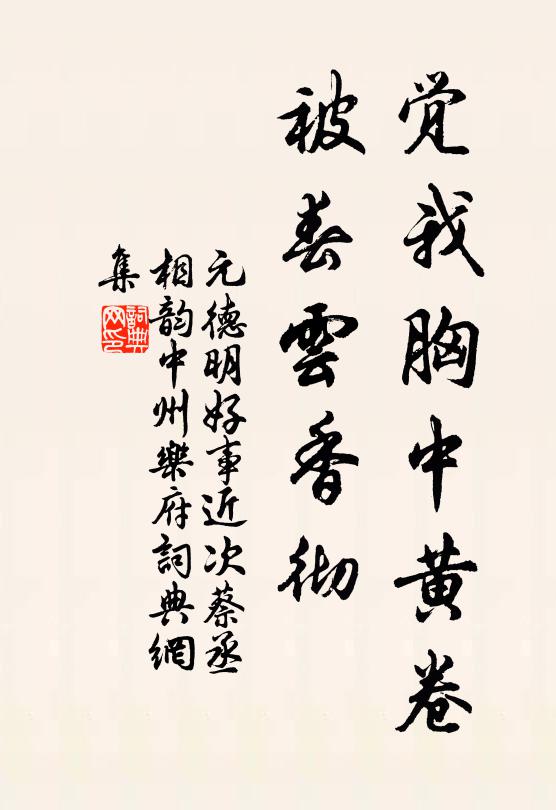 觉我胸中黄卷
被春雲香彻
元德明好事近次蔡丞
相韵中州樂府詞典網
集
詞典网印